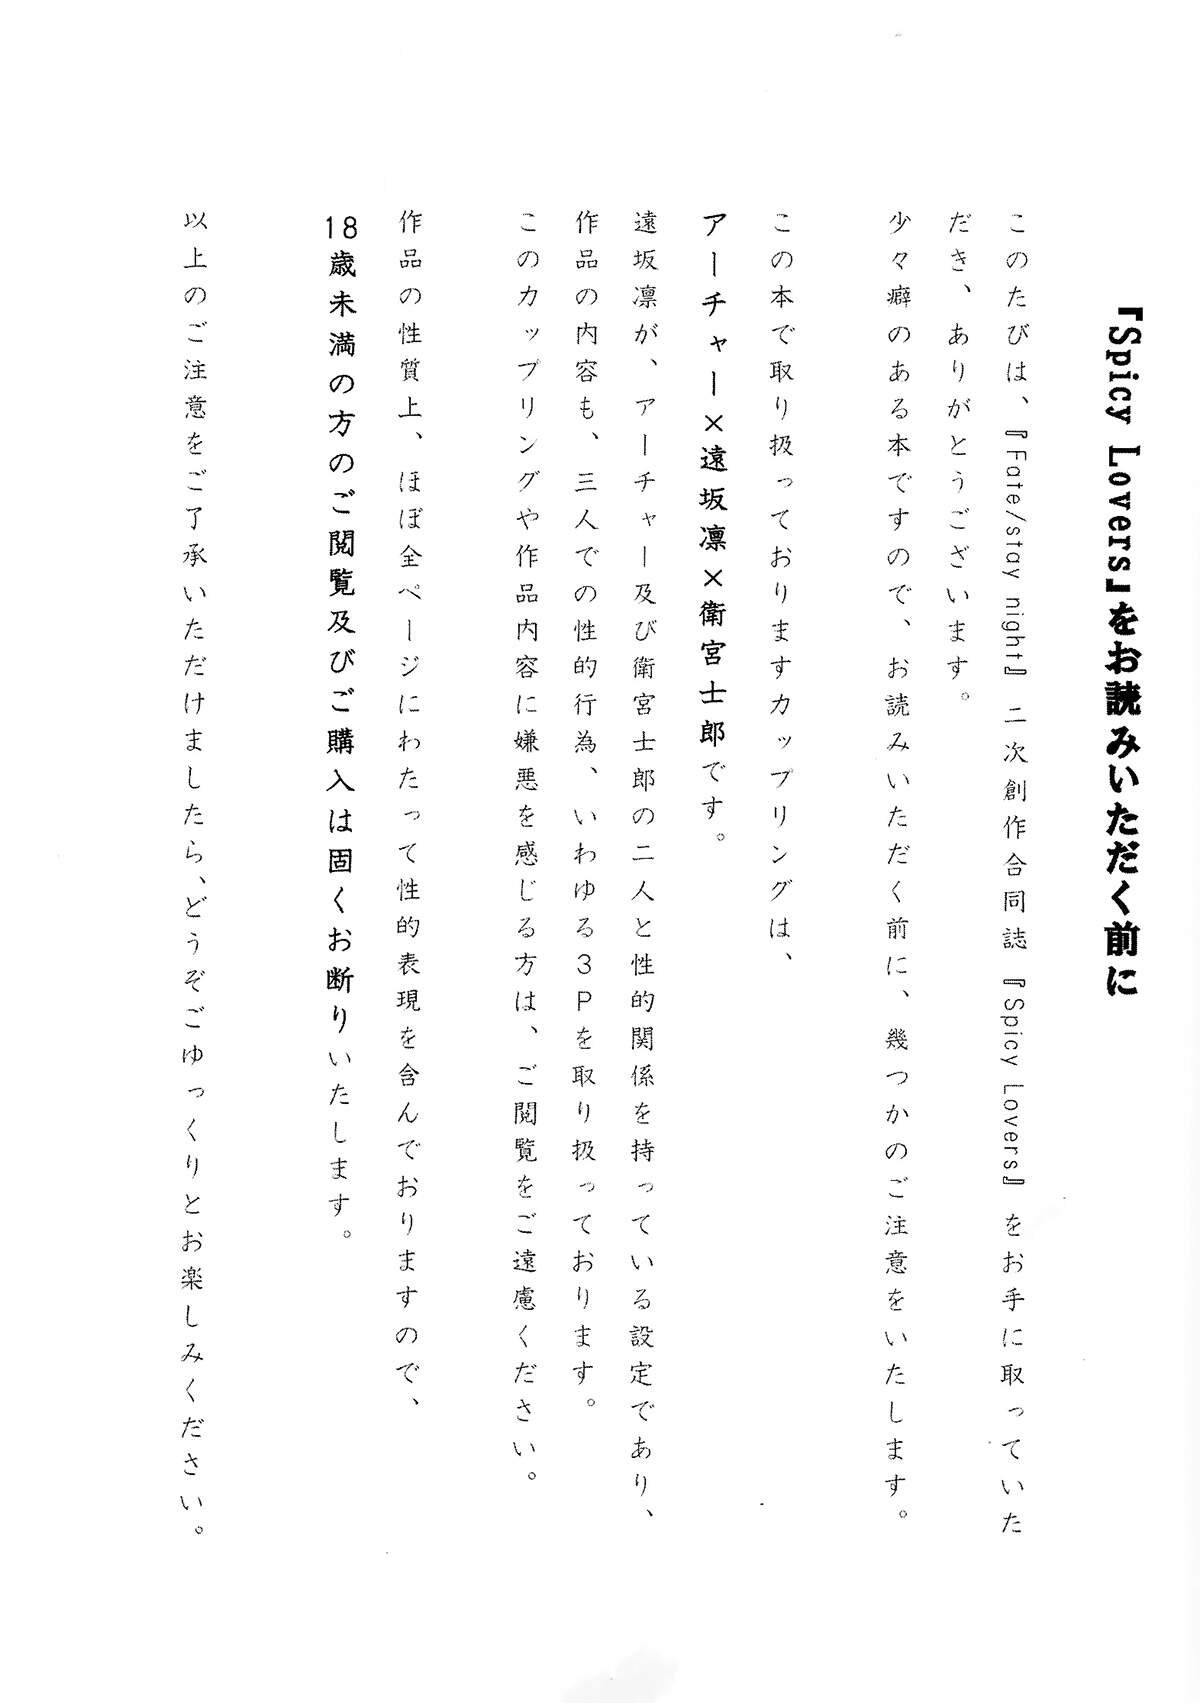 『Spicy Lovers』をお読みいただく前に
このたびは、『Fate/stay night』二次創作合同誌『Spicy Lovers』をお手に取っていた
だき、ありがとうございます。
少々癖のある本ですので、お読みいただく前に、幾つかのご注意をいたします。
この本で取り扱っておりますカップリングは、
アーチャー×遠坂凛×衛宮士郎です。
遠坂凛が、アーチャー及び衛宮士郎の二人と性的関係を持っている設定であり、
作品の内容も、三人での性的行為、いわゆる3Pを取り扱っております。
このカップリングや作品内容に嫌悪を感じる方は、ご閲覧をご遠慮ください。
作品の性質上、ほぼ全ページにわたって性的表現を含んでおりますので、
18歳未満の方のご閲覧及びご購入は固くお断りいたします。
以上のご注意をご了承いただけましたら、どうぞごゆっくりとお楽しみください。